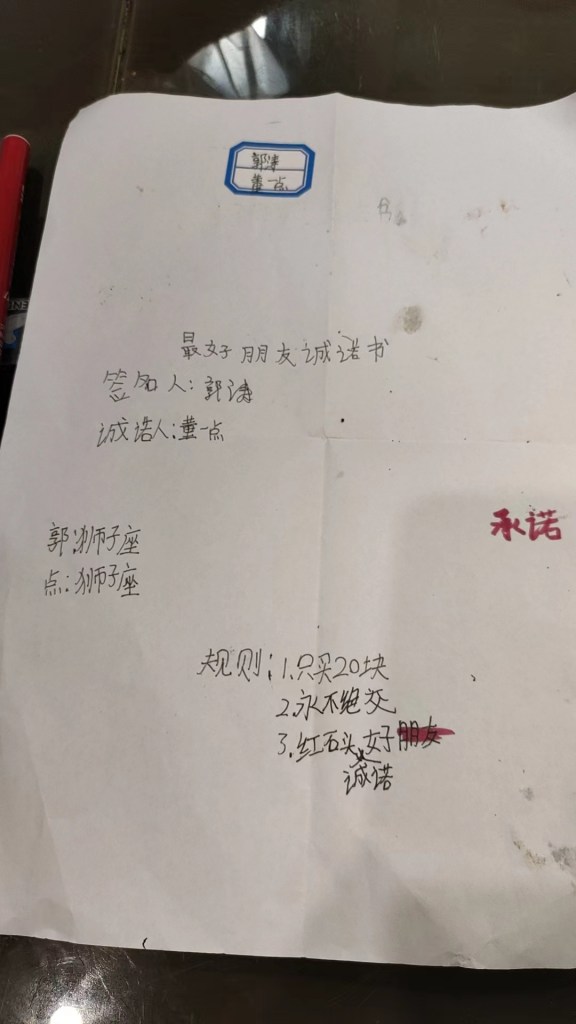 郭涛
董一点
最好朋友诚诺书
签名人:郭涛
诚诺人:董一点
承诺
郭:狮子座
点:狮子座
规则:1.只买20块
2.永不绝交
3.红石头好朋友
诚诺